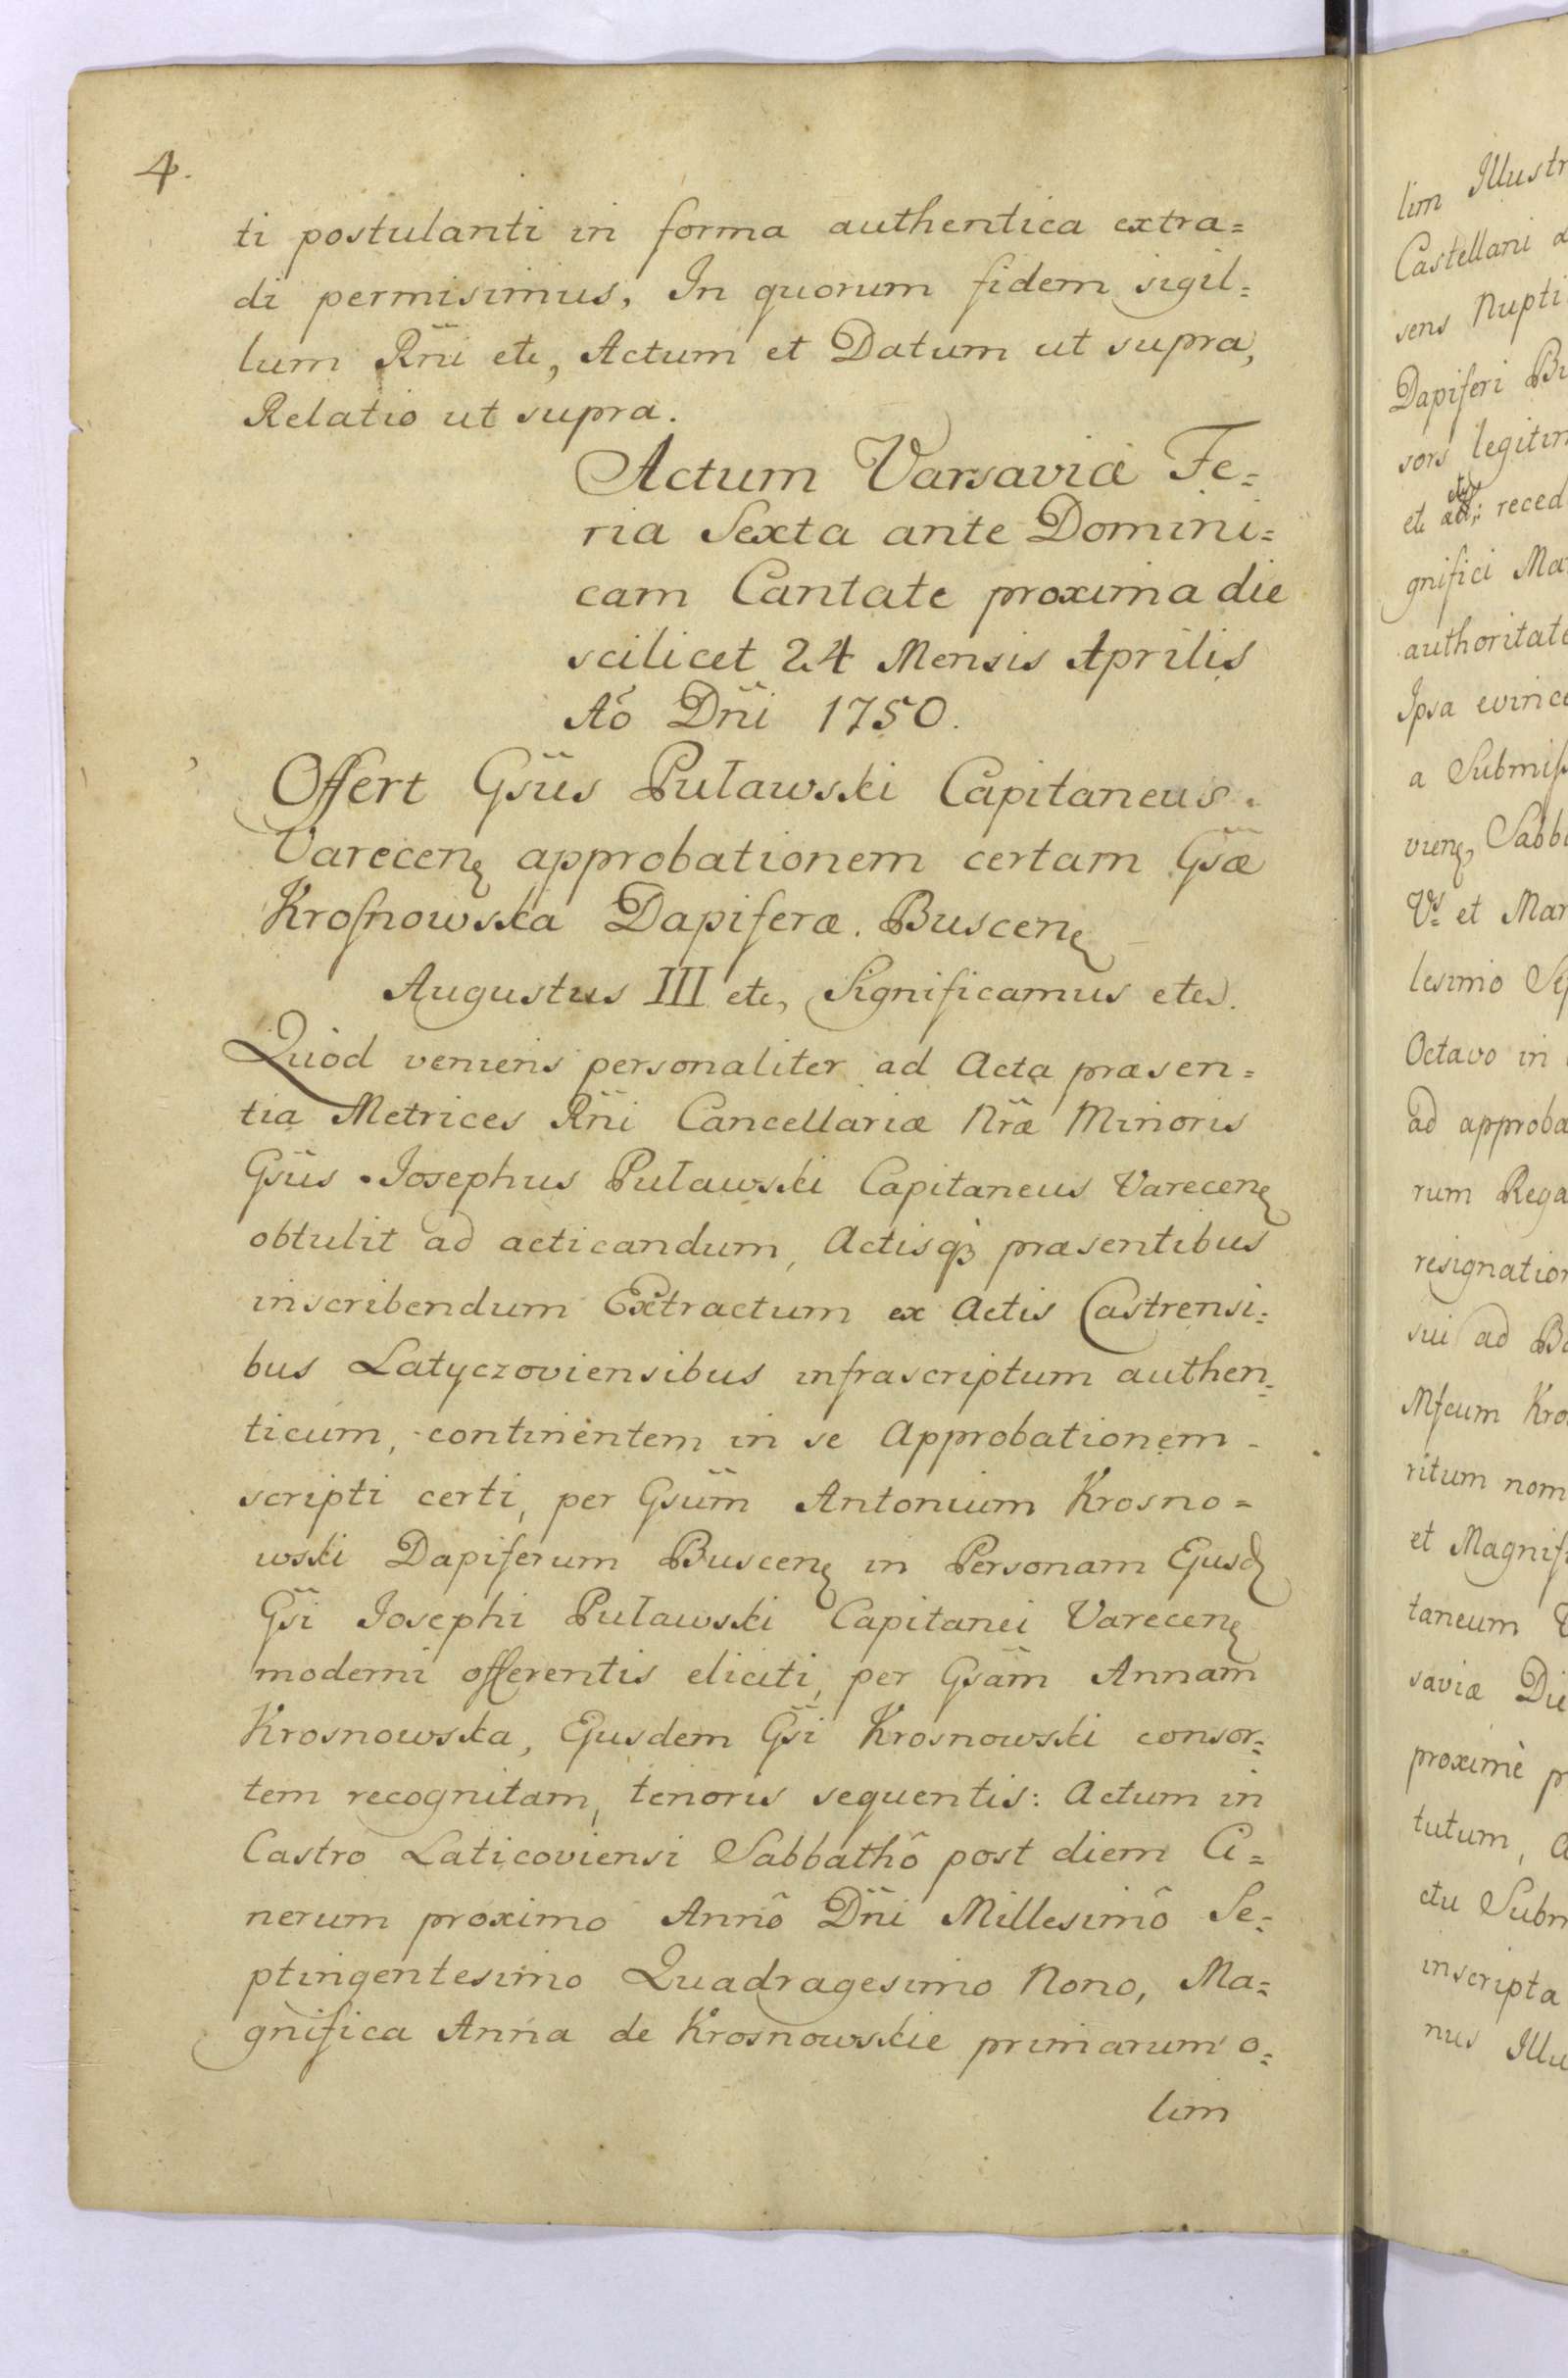 4.
ti postulanti in forma authentica extra=
di permisimus, In quorum fidem sigil=
lum Rñi etc, Actum et Datum ut supra,
Relatio ut supra.
Actum Varsaviæ Fe=
ria Sexta ante Domini=
cam Cantate proxima die
scilicet 24 Mensis Aprilis
Aõ Dñi 1750.
Offert Gsüs Puławski Capitaneus
Varecen approbationem certam Gsæ
Krosnowska Dapiferæ Buscen
Augustus III etc, Significamus etc.
Quod veniens personaliter ad Acta præsen=
tia Metrices Rñi Cancellariæ Nræ Minoris
Gsüs Josephus Puławski Capitaneus Varecen
obtulit ad acticandum, Actisq3 præsentibus
inscribendum Extractum ex Actis Castrensi=
bus Latyczoviensibus infrascriptum authen=
ticum, continentem in se Approbationem
scripti certi, per Gsum̃ Antonium Krosno=
wski Dapiferum Buscen in Personam Ejusd
Gsi Josephi Puławski Capitanei Varecen
moderni offerentis eliciti, per Gsam̃ Annam
Krosnowska, Ejusdem Gsi Krosnowski consor=
tem recognitam, tenoris sequentis: Actum in
Castro Laticoviensi Sabbathô post diem Ci=
nerum proximo Annô Dñi Millesimô Se=
ptingentesimo Quadragesimo Nono, Ma=
gnifica Anna de Krosnowskie primarum o=
lim
lim Illustr
Castellani
sens Nupti
Dapiferi Bu
sors legitim
etc recedi
gnifici Ma
authoritate
Ipsa evince
a Submiss
vien, Sabba
Vs et Mar
lesimo Sep
Octavo in
ad approba
rum Rega
resignation
sui ad Ba
Mfcum Kro
ritum nom
et Magnifi
taneum
saviæ Die
proxime p
tutum, a
ctu Subm
inscripta
nus Illu